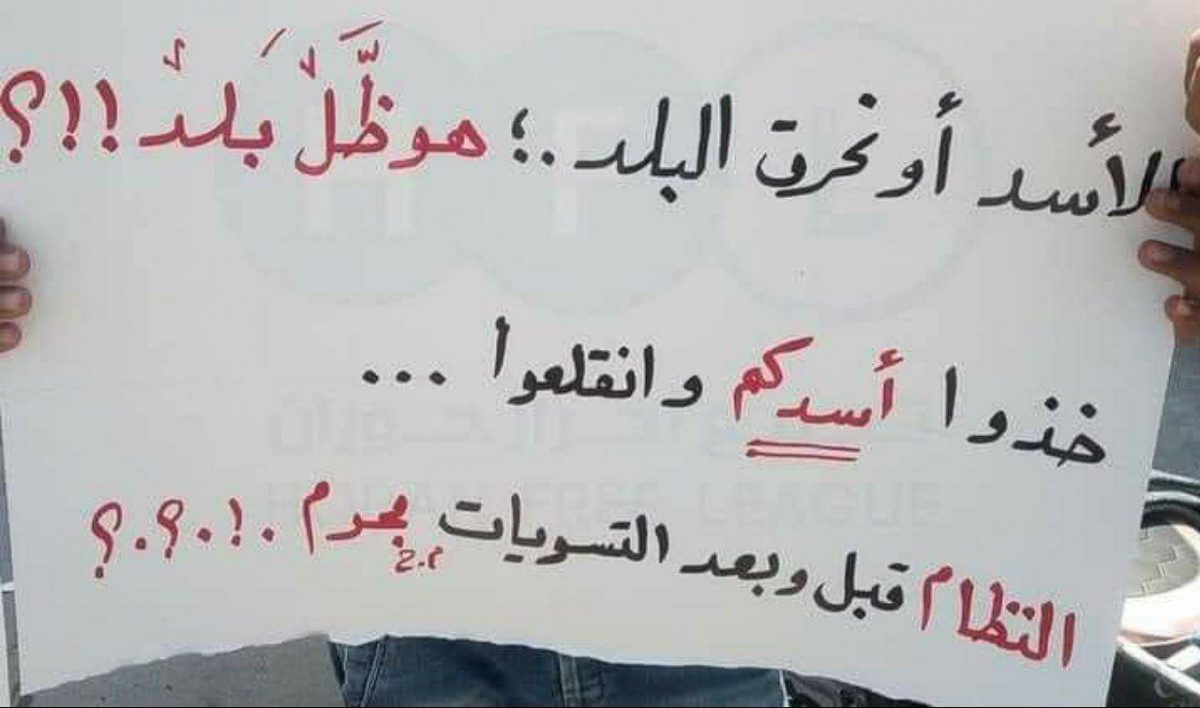 الأسد أو نحرق البلد .؛ هو ظَّلْ بَلدْ !!؟
خذوا أسدكم وانقلعوا ...
النظام قبل وبعد التسويات مجرم .!.؟.؟
حوران
HORAN FREE LEAGUE